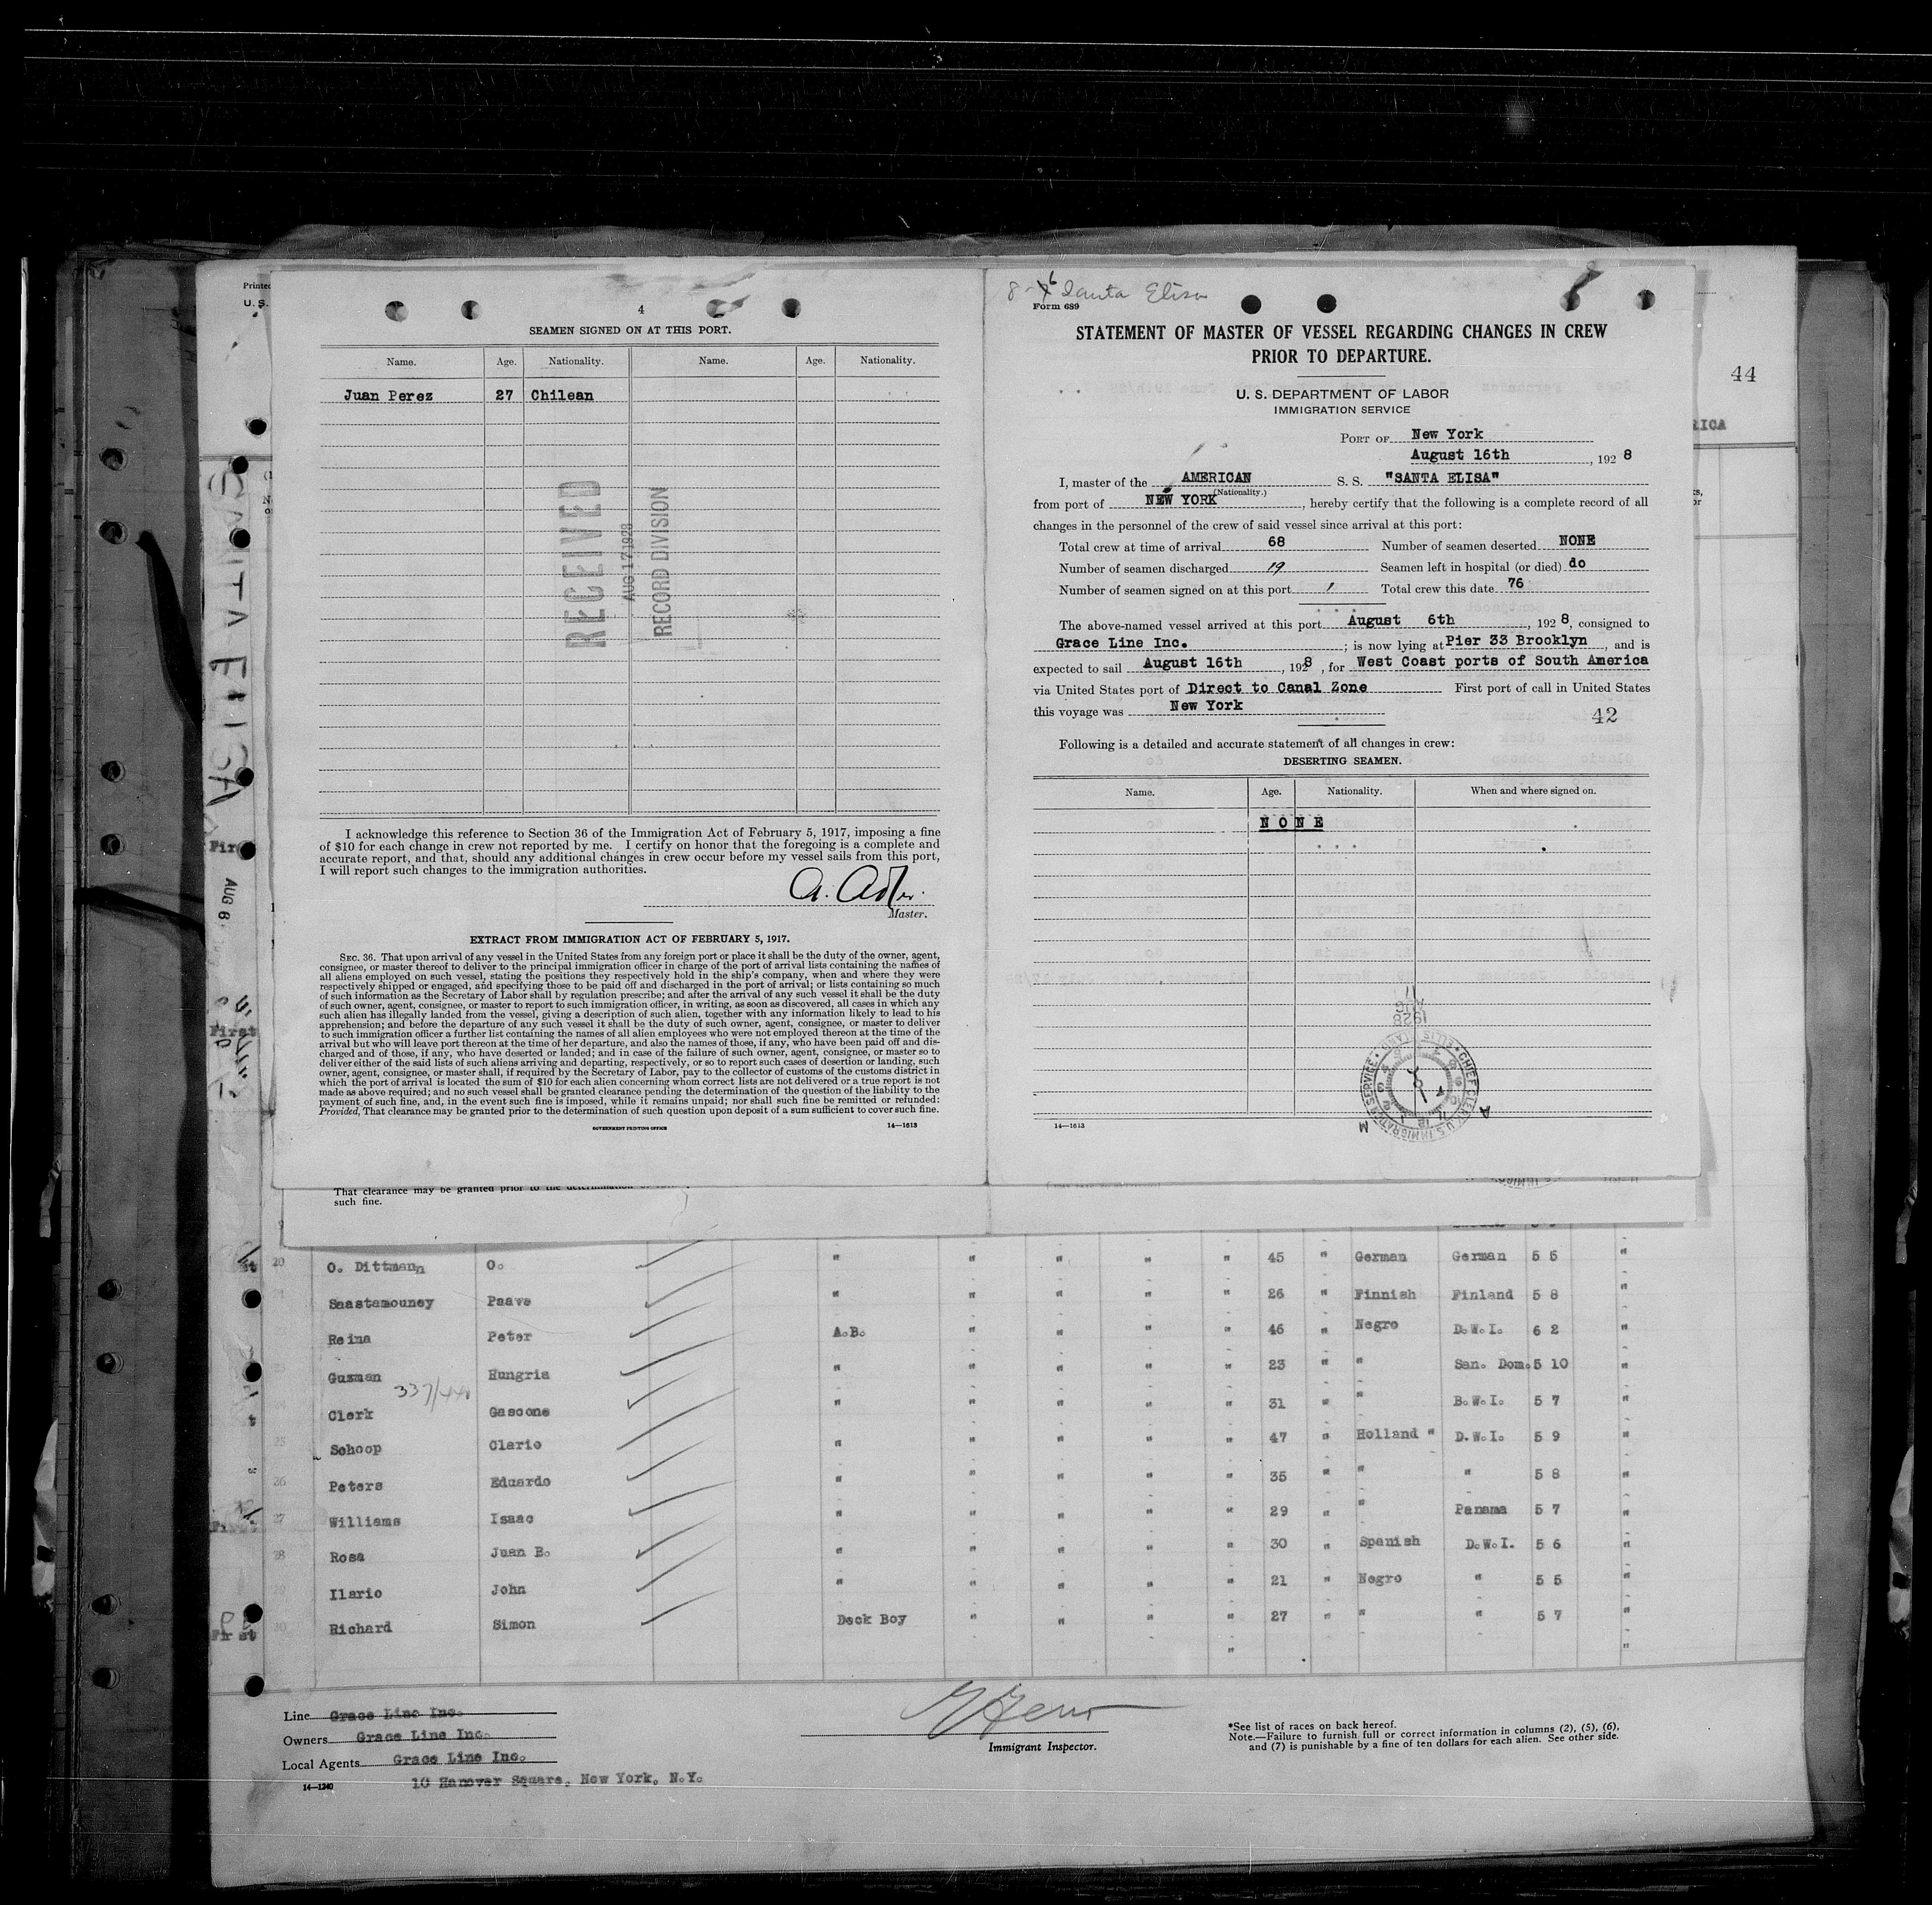 Printed
U. S.
4
SEAMEN SIGNED ON AT THIS PORT.
Name. Age. Nationality. Name. Age. Nationality.
Juan Perez 27 Chilean
RECEIVED
AUG 17 1928
RECORD DIVISION
I acknowledge this reference to Section 36 of the Immigration Act of February 5, 1917, imposing a fine
of $10 for each change in crew not reported by me. I certify on honor that the foregoing is a complete and
accurate report, and that, should any additional changes in crew occur before my vessel sails from this port,
I will report such changes to the immigration authorities.
A. Adler
Master.
EXTRACT FROM IMMIGRATION ACT OF FEBRUARY 5, 1917.
SEC. 36. That upon arrival of any vessel in the United States from any foreign port or place it shall be the duty of the owner, agent,
consignee, or master thereof to deliver to the principal immigration officer in charge of the port of arrival lists containing the names of
all aliens employed on such vessel, stating the positions they respectively hold in the ship's company, when and where they were
respectively shipped or engaged, and specifying those to be paid off and discharged in the port of arrival; or lists containing so much
of such information as the Secretary of Labor shall by regulation prescribe; and after the arrival of any such vessel it shall be the duty
of such owner, agent, consignee, or master to report to such immigration officer, in writing, as soon as discovered, all cases in which any
such alien has illegally landed from the vessel, giving a description of such alien, together with any information likely to lead to his
apprehension; and before the departure of any such vessel it shall be the duty of such owner, agent, consignee, or master to deliver
to such immigration officer a further list containing the names of all alien employees who were not employed thereon at the time of the
arrival but who will leave port thereon at the time of her departure, and also the names of those, if any, who have been paid off and dis-
charged and of those, if any, who have deserted or landed; and in case of the failure of such owner, agent, consignee, or master so to
deliver either of the said lists of such aliens arriving and departing, respectively, or so to report such cases of desertion or landing, such
owner, agent, consignee, or master shall, if required by the Secretary of Labor, pay to the collector of customs of the customs district in
which the port of arrival is located the sum of $10 for each alien concerning whom correct lists are not delivered or a true report is not
made as above required; and no such vessel shall be granted clearance pending the determination of the question of the liability to the
payment of such fine, and, in the event such fine is imposed, while it remains unpaid; nor shall such fine be remitted or refunded:
Provided, That clearance may be granted prior to the determination of such question upon deposit of a sum sufficient to cover such fine.
GOVERNMENT PRINTING OFFICE
14—1613
8-6 Santa Elisa
Form 689
STATEMENT OF MASTER OF VESSEL REGARDING CHANGES IN CREW
PRIOR TO DEPARTURE.
U. S. DEPARTMENT OF LABOR
IMMIGRATION SERVICE
PORT OF New York
August 16th, 1928
I, master of the AMERICAN S. S. "SANTA ELISA"
(Nationality.)
from port of NEW YORK, hereby certify that the following is a complete record of all
changes in the personnel of the crew of said vessel since arrival at this port:
Total crew at time of arrival 68 Number of seamen deserted NONE
Number of seamen discharged 19 Seamen left in hospital (or died) do
Number of seamen signed on at this port 1 Total crew this date 76
The above-named vessel arrived at this port August 6th, 1928, consigned to
Grace Line Inc.; is now lying at Pier 33 Brooklyn, and is
expected to sail August 16th, 1928, for West Coast ports of South America
via United States port of Direct to Canal Zone First port of call in United States
this voyage was New York
42
Following is a detailed and accurate statement of all changes in crew:
DESERTING SEAMEN.
Name. Age. Nationality. When and where signed on.
NONE
CHIEF CLERK U.S. IMMIGRATION SERVICE
14—1613
44
RICA
SANTA ELISA
AUG 6
First
First
That clearance may be granted prior to the
such fine.
20 O. Dittmann O. " " " " " 45 " German German 5 5 "
Saastamouney Paave " " " " " 26 " Finnish Finland 5 8 "
Reina Peter A.B. " " " " 46 " Negro D.W.I. 6 2 "
Guzman Hungria " " " " " 23 " " San. Dom. 5 10 "
337/44
Clerk Gascone " " " " " 31 " " B.W.I. 5 7 "
25 Schoop Clario " " " " " 47 " Holland " D.W.I. 5 9 "
26 Peters Eduardo " " " " " 35 " " " 5 8 "
27 Williams Isaac " " " " " 29 " " Panama 5 7 "
28 Rosa Juan B. " " " " " 30 " Spanish D.W.I. 5 6 "
29 Ilario John " " " " " 21 " Negro " 5 5 "
30 Richard Simon Deck Boy " " " " 27 " " " 5 7 "
Line Grace Line Inc.
Owners Grace Line Inc.
Local Agents Grace Line Inc.
14—1240
10 Hanover Square, New York, N.Y.
Immigrant Inspector.
*See list of races on back hereof.
Note.—Failure to furnish full or correct information in columns (2), (5), (6),
and (7) is punishable by a fine of ten dollars for each alien. See other side.